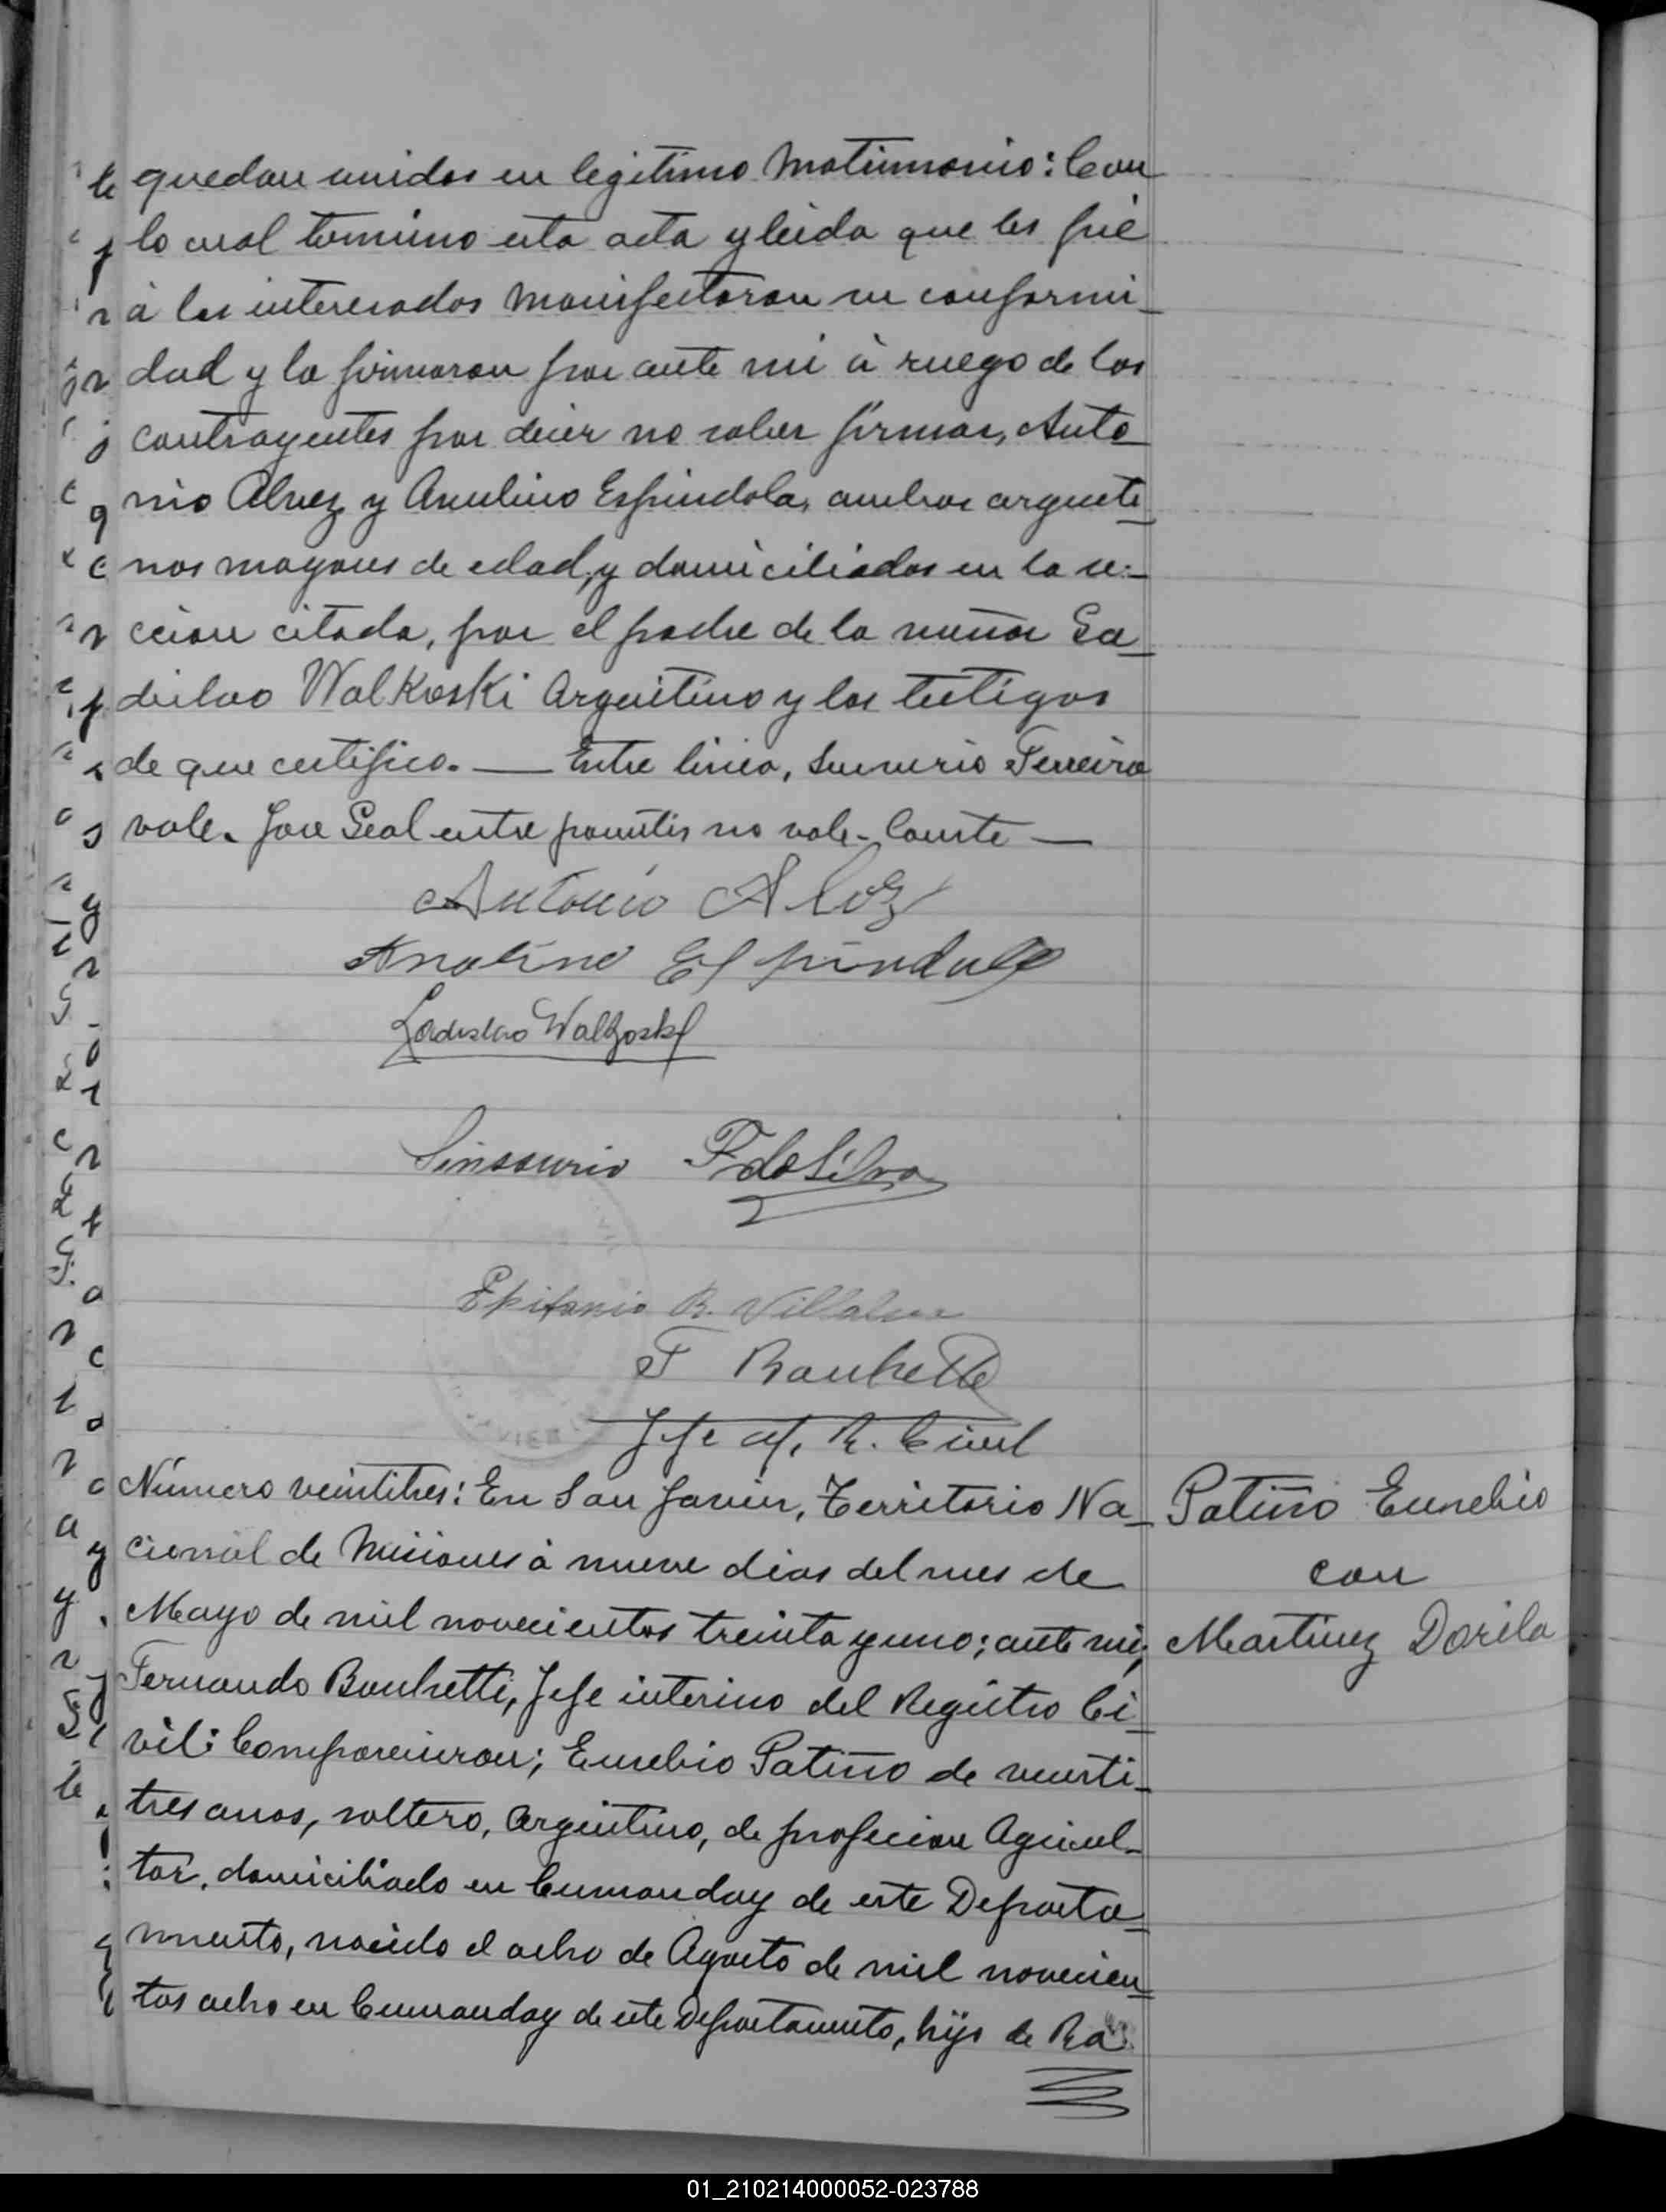 quedan unidos en legitimo Matrimonio: Con
lo cual termino esta acta y leida que les fué
á los interesados manifestaron su conformi-
dad y la firmaron por ante mi á ruego de los
contrayentes por decir no saber firmar, Anto-
nio Alvez y Anulino Espindola, ambos argenti-
nos mayores de edad, y domiciliados en la se-
ccion citada, por el padre de la menor La-
dislao Walkoski Argentino y los testigos
de que certifico. — Entre linea, Ferreira
vale. Jose Leal entre parentis no vale. Conste —
Antonio Alvez
Espindola
Ladislao Walkoski
Sinsourio F da Silva
Epifanio R. Villalva
F Banchetti
Jefe of. R. Civil
Número veintitres: En San Javier, Territorio Na-
cional de Misiones á nueve dias del mes de
Mayo de mil novecientos treinta y uno; ante mi,
Fernando Banchetti, Jefe interino del Registro Ci-
vil: Comparecieron; Eusebio Patiño de veinti-
tres anos, soltero, Argentino, de profecion Agricul-
tor, domiciliado en Cumanday de este Departa-
mento, nacido el ocho de Agosto de mil novecien-
tos ocho en Cumanday de este Departamento, hijo de Ra
Patiño Eusebio
con
Martinez Dorila
01_210214000052-023788